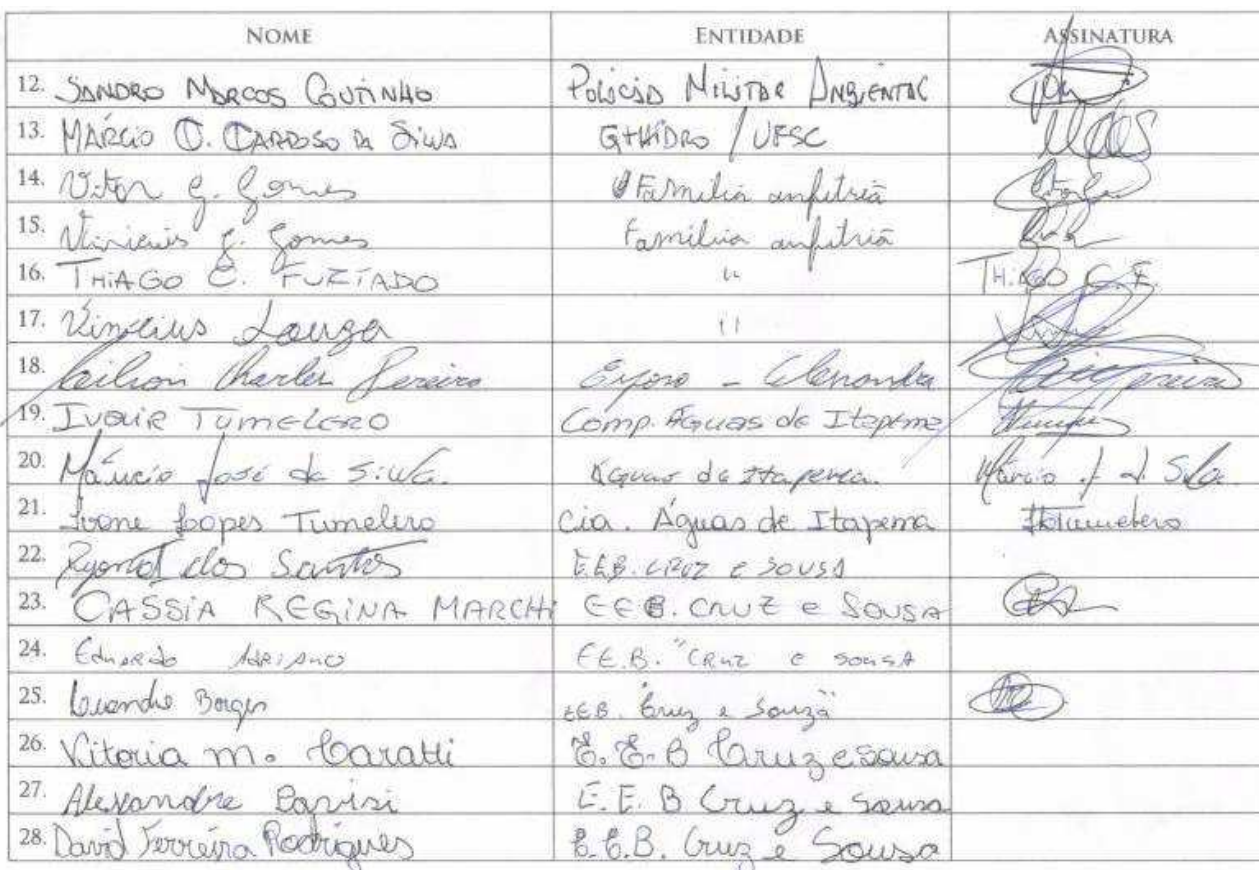 NOME ENTIDADE ASSINATURA
12. SANDRO MARCOS COUTINHO POLICIA MILITAR AMBIENTAL
13. MÁRCIO C. CARDOSO DA SILVA GTHIDRO / UFSC
14. Vitor G. Gomes Família anfitriã
15. Vinicius G. Gomes família anfitriã
16. THIAGO C. FURTADO " THIAGO C. F.
17. Vinicius Louza "
18. Charles Pereira
19. IVOUIR TUMELERO Comp. Águas de Itapema
20. Márcio José da Silva. Águas de Itapema. Márcio J. d. Silva
21. Ivone Lopes Tumelero Cia. Águas de Itapema
22. dos Santos E.E.B. CRUZ E SOUSA
23. CASSIA REGINA MARCHI EEB. CRUZ e SOUSA
24. Eduardo Adriano E.E.B. "CRUZ e SOUSA
25. Leandro Borges EEB. Cruz e Souza"
26. Vitoria m. Caratti E.E.B Cruz e Sousa
27. Alexandre E.E.B Cruz e Sousa
28. David Ferreira Rodrigues E.E.B. Cruz e Sousa